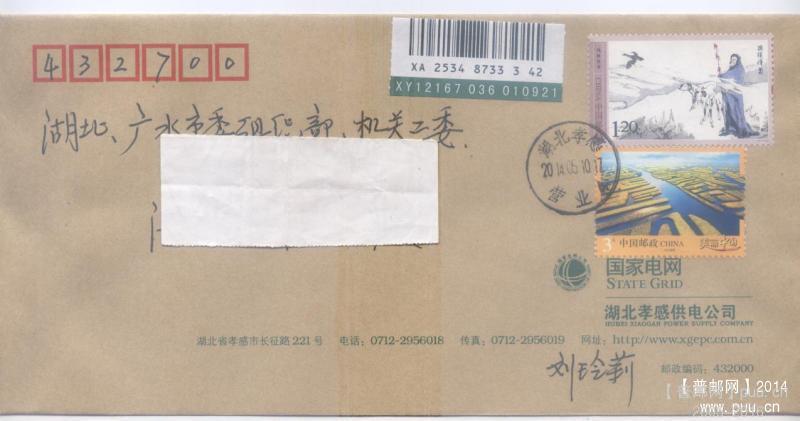 432700
XA 2534 8733 3 42
XY12167 036 010921
湖北、广水市委组织部、机关工委
1.20
中国邮政 CHINA
湖北孝感
2014.05.10.17
营业
3元
中国邮政 CHINA
美丽中国
国家电网
STATE GRID
湖北孝感供电公司
HUBEI XIAOGAN POWER SUPPLY COMPANY
湖北省孝感市长征路221号 电话：0712-2956018 传真：0712-2956019 网址：http://www.xgepc.com.cn
邮政编码：432000
【普邮网】2014
www.puu.cn